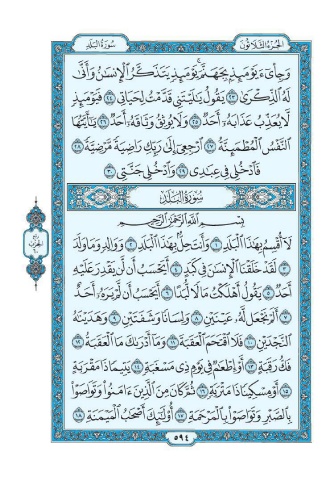 الجزء الثلاثون
سورة البلد
وَجِاْيٓءَ يَوْمَئِذِۭ بِجَهَنَّمَۚ يَوْمَئِذٖ يَتَذَكَّرُ ٱلْإِنسَٰنُ وَأَنَّىٰ
لَهُ ٱلذِّكْرَىٰ ٢٣ يَقُولُ يَٰلَيْتَنِي قَدَّمْتُ لِحَيَاتِي ٢٤ فَيَوْمَئِذٖ
لَّا يُعَذِّبُ عَذَابَهُۥٓ أَحَدٞ ٢٥ وَلَا يُوثِقُ وَثَاقَهُۥٓ أَحَدٞ ٢٦ يَٰٓأَيَّتُهَا
ٱلنَّفْسُ ٱلْمُطْمَئِنَّةُ ٢٧ ٱرْجِعِيٓ إِلَىٰ رَبِّكِ رَاضِيَةٗ مَّرْضِيَّةٗ ٢٨
فَٱدْخُلِي فِي عِبَٰدِي ٢٩ وَٱدْخُلِي جَنَّتِي ٣٠
سورة البلد
بِسْمِ ٱللَّهِ ٱلرَّحْمَٰنِ ٱلرَّحِيمِ
لَآ أُقْسِمُ بِهَٰذَا ٱلْبَلَدِ ١ وَأَنتَ حِلُّۢ بِهَٰذَا ٱلْبَلَدِ ٢ وَوَالِدٖ وَمَا وَلَدَ
٣ لَقَدْ خَلَقْنَا ٱلْإِنسَٰنَ فِي كَبَدٍ ٤ أَيَحْسَبُ أَن لَّن يَقْدِرَ عَلَيْهِ
أَحَدٞ ٥ يَقُولُ أَهْلَكْتُ مَالٗا لُّبَدًا ٦ أَيَحْسَبُ أَن لَّمْ يَرَهُۥٓ أَحَدٌ
٧ أَلَمْ نَجْعَل لَّهُۥ عَيْنَيْنِ ٨ وَلِسَانٗا وَشَفَتَيْنِ ٩ وَهَدَيْنَٰهُ
ٱلنَّجْدَيْنِ ١٠ فَلَا ٱقْتَحَمَ ٱلْعَقَبَةَ ١١ وَمَآ أَدْرَىٰكَ مَا ٱلْعَقَبَةُ ١٢
فَكُّ رَقَبَةٍ ١٣ أَوْ إِطْعَٰمٞ فِي يَوْمٖ ذِي مَسْغَبَةٖ ١٤ يَتِيمٗا ذَا مَقْرَبَةٍ
١٥ أَوْ مِسْكِينٗا ذَا مَتْرَبَةٖ ١٦ ثُمَّ كَانَ مِنَ ٱلَّذِينَ ءَامَنُواْ وَتَوَاصَوْاْ
بِٱلصَّبْرِ وَتَوَاصَوْاْ بِٱلْمَرْحَمَةِ ١٧ أُوْلَٰٓئِكَ أَصْحَٰبُ ٱلْمَيْمَنَةِ ١٨
٥٩٤